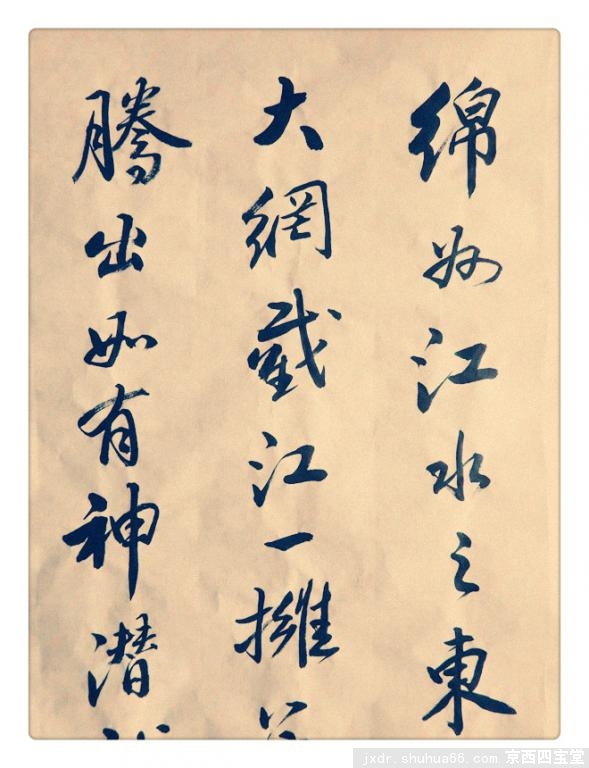 綿州江水之東
大網截江一擁
騰出如有神潜
jxdr.shuhua66.com 京西四宝堂